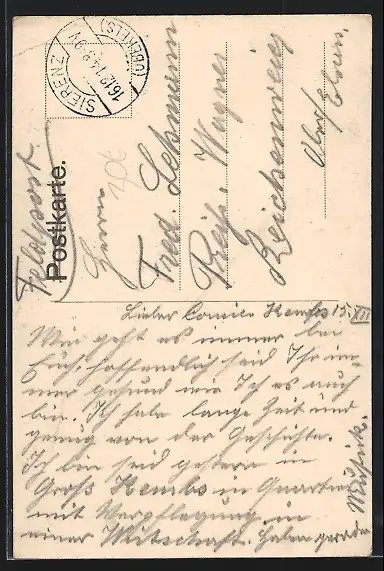 SIERENZ
(OBERELS)
16.12.14.8-9V
Feldpost
Postkarte.
306
Herrn
Fred. Lehmann
Wagner
Reichenweier
Ober Elsass.
Lieber Cousin Kembs 15. XII
Wie geht es immer bei
Euch, hoffendlich seid Ihr im-
mer gesund wie Ich es auch
bin. Ich habe lange Zeit und
genug von der Geschichte.
Ich bin seid gestern in
Groß Kembs in Quartier
mit Verpflegung in
einer Wirtschaft. haben gerade
Musik.